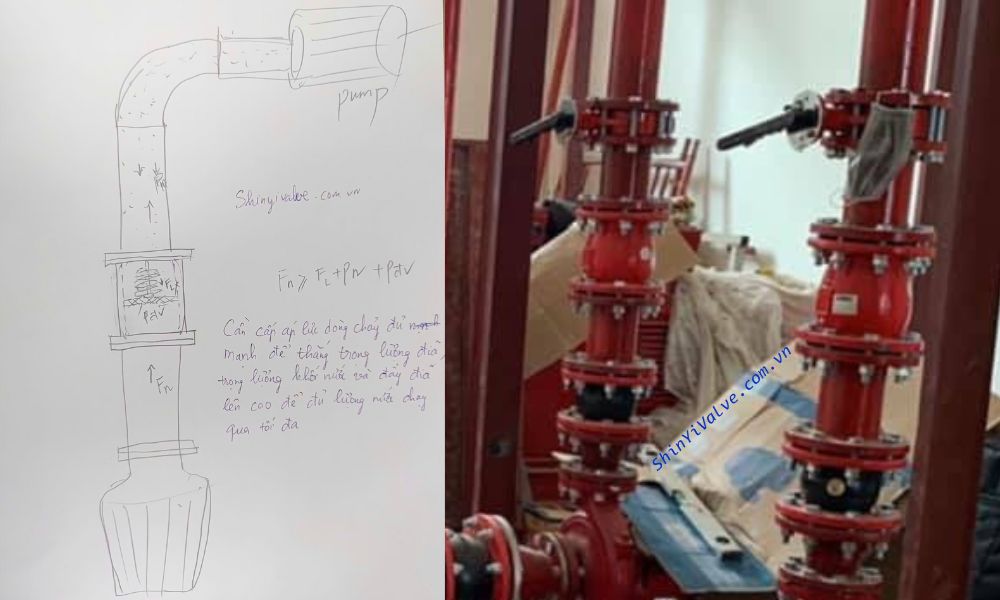 pump
Shinyivalve.com.vn
Fn ≥ FL + Pn + Pđv
Cần cấp áp lực dòng chảy đủ
mạnh để thắng trọng lượng đĩa,
trọng lượng khối nước và đẩy đĩa
lên cao để đủ lượng nước chảy
qua tối đa
FLx
Pđv
Fn
ShinYiValve.com.vn